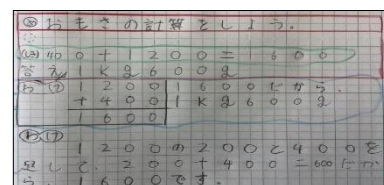 めおもさの計算をしよう。
(しき)400+1200=1600
答え1Kg600g
わ け 1200 1600だから、
+400 1Kg600g
1600
1200の200と400を
足して、200+400=600だか
ら、1600です。